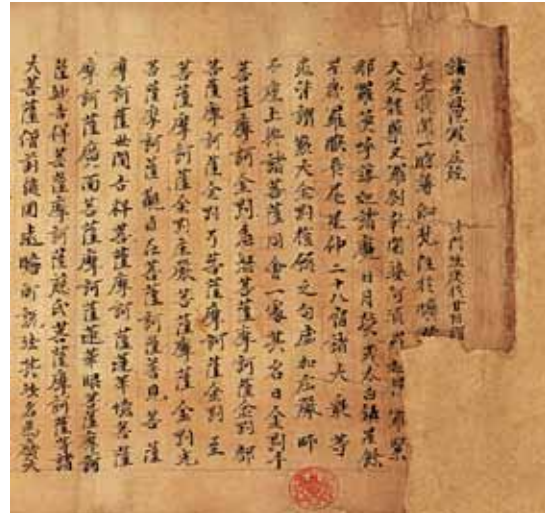 諸星母陀羅尼經 沙門法成於甘州譯
如是我聞一時薄伽梵住於曠野
大及龍藥叉羅刹乾闥婆阿須羅迦樓羅緊
那羅莫呼洛迦諸魔日月熒惑太白鎮星餘
星歲羅睺長尾星神二十八宿諸大眾等
悉皆讚歎大金剛誓願之句虛加莊嚴師
子座上與諸菩薩同會一處其名曰金剛手
菩薩摩訶薩金剛忿怒菩薩摩訶薩金剛部
菩薩摩訶薩金剛弓菩薩摩訶薩金剛主
菩薩摩訶薩金剛主嚴菩薩摩訶薩金剛光
菩薩摩訶薩觀自在菩薩摩訶薩普見菩薩
摩訶薩世間吉祥菩薩摩訶薩蓮華幢菩薩
摩訶薩廣面菩薩摩訶薩蓮華眼菩薩摩訶
薩妙吉祥菩薩摩訶薩慈氏菩薩摩訶薩等諸
大菩薩僧前後圍遶